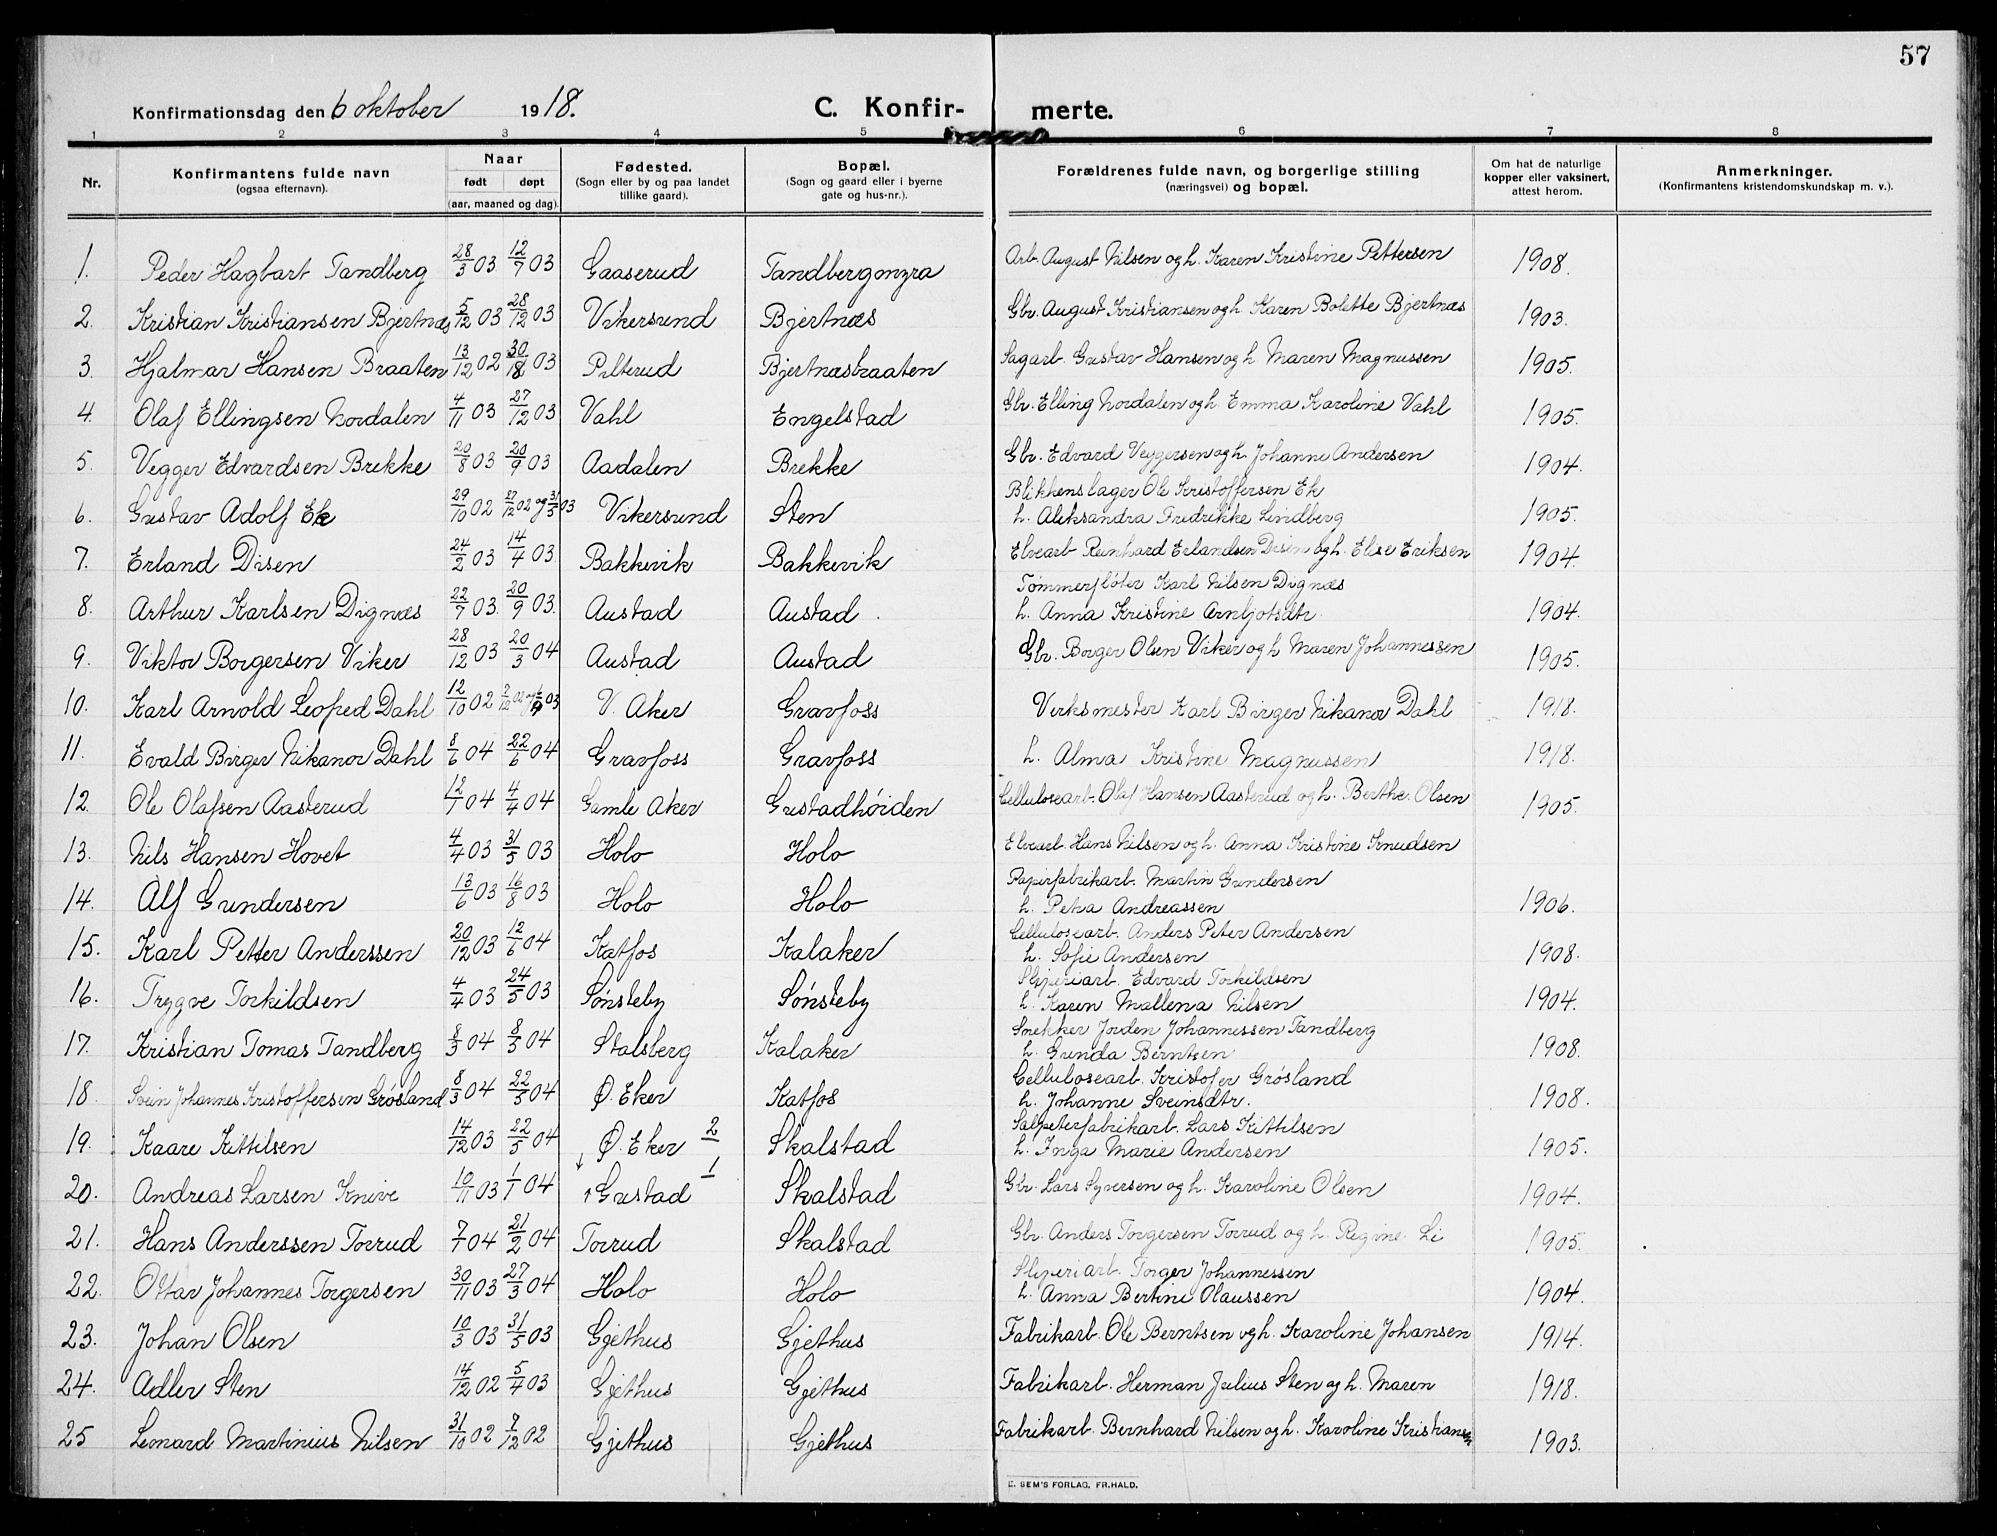 57
Konfirmationsdag den 6 oktober 1918. C. Konfir- merte.
1 2 3 4 5 6 7 8
Nr. Konfirmantens fulde navn (ogsaa efternavn). Naar født døpt (aar, maaned og dag). Fødested. (Sogn eller by og paa landet tillike gaard). Bopæl. (Sogn og gaard eller i byerne gate og hus-nr.). Forældrenes fulde navn, og borgerlige stilling (næringsvei) og bopæl. Om hat de naturlige kopper eller vaksinert, attest herom. Anmerkninger. (Konfirmantens kristendomskundskap m. v.).
1. Peder Hagbart Tandberg 28/3 03 12/7 03 Gaaserud Tandbergmyra Arb. August Nilsen og h. Karen Kristine Pettersen 1908.
2. Kristian Kristiansen Bjertnæs 5/12 03 28/12 03 Vikersund Bjertnæs Gbr. August Kristiansen og h. Karen Bolette Bjertnæs 1903.
3. Hjalmar Hansen Braaten 13/12 02 30/18 03 Pilterud Bjertnæsbraaten Sagarb. Gustav Hansen og h. Maren Magnussen 1905.
4. Olaf Ellingsen Nordalen 4/11 03 27/12 03 Vahl Engelstad Gbr. Elling Nordalen og h. Emma Karoline Vahl 1905.
5. Vegger Edvardsen Brekke 20/8 03 20/9 03 Aadalen Brekke Gbr. Edvard Veggersen og h. Johanne Andersen 1904.
6. Gustav Adolf Ek 29/10 02 27/12 02 og 31/5 03 Vikersund Sten Blikkenslager Ole Kristoffersen Ek
h. Aleksandra Fredrikke Lindberg 1905.
7. Erland Disen 24/2 03 14/4 03 Bakkevik Bakkevik Elvearb. Reinhard Erlandsen Disen og h. Elise Eriksen 1904.
8. Arthur Karlsen Dignæs 22/7 03. 20/9 03. Austad Austad Tømmerfløter Karl Nilsen Dignæs
h. Anna Kristine Arnljotsdtr. 1904.
9. Viktor Borgersen Viker 28/12 03 20/3 04 Austad Austad Gbr. Borger Olsen Viker og h. Maren Johannessen 1905.
10. Karl Arnold Leoped Dahl 12/10 02 V. Aker Gravfoss Verksmester Karl Birger Nikanor Dahl 1918.
11. Evald Birger Nikanor Dahl 8/6 04 22/6 04 Gravfoss Gravfoss h. Alma Kristine Magnussen 1918.
12. Ole Olafsen Aasterud 12/1 04 4/4 04 Gamle Aker Gustadhøiden Cellulosearb. Olaf Hansen Aasterud og h. Berthe Olsen 1905.
13. Nils Hansen Hovet 4/4 03 31/5 03 Holo Holo Elvearb. Hans Nilsen og h. Anna Kristine Knudsen
14. Alf Gundersen 13/6 03 16/8 03 Holo Holo Papirfabrikarb. Martin Gundersen
h. Petra Andreassen 1906.
15. Karl Petter Anderssen 20/12 03 12/6 04 Katfos Kalaker Cellulosearb. Anders Peter Andersen
h. Sofie Andersen 1908.
16. Trygve Torkildsen 4/4 03 24/5 03 Sønsteby Sønsteby Sliperiarb. Edvard Torkildsen
h. Karen Mallena Nilsen 1904.
17. Kristian Tomas Tandberg 8/3 04 8/5 04 Stalsberg Kalaker Snekker Jorden Johannessen Tandberg
h. Gunda Berntsen 1908.
18. Svein Johannes Kristoffersen Grøsland 8/3 04 22/5 04 Ø. Eker Katfos Cellulosearb. Kristofer Grøsland
h. Johanne Sveinsdtr. 1908.
19. Kaare Kittilsen 14/12 03 22/5 04 Ø. Eker 2 Skalstad Salpeterfabrikarb. Lars Kittilsen
h. Inga Marie Andersen 1905.
20. Andreas Larsen Knive 10/11 03 1/1 04 Gustad 1 Skalstad Gbr. Lars Syversen og h. Karoline Olsen 1904.
21. Hans Anderssen Torrud 7/1 04 21/2 04 Torrud Skalstad Gbr. Anders Torgersen Torrud og h. Regine Li 1905.
22. Ottar Johannes Torgersen 30/11 03 27/3 04 Holo Holo Sliperiarb. Torger Johannessen
h. Anna Bertine Olaussen 1904.
23. Johan Olsen 10/3 03 31/5 03 Gjethus Gjethus Fabrikarb. Ole Berntsen og h. Karoline Johansen 1914.
24. Adler Sten 14/12 02 5/4 03 Gjethus Gjethus Fabrikarb. Herman Julius Sten og h. Maren 1918.
25 Leonard Martinius Nilsen 31/10 02 7/12 02 Gjethus Gjethus Fabrikarb. Bernhard Nilsen og h. Karoline Kristiansen 1903.
E. SEM'S FORLAG, FR.HALD.